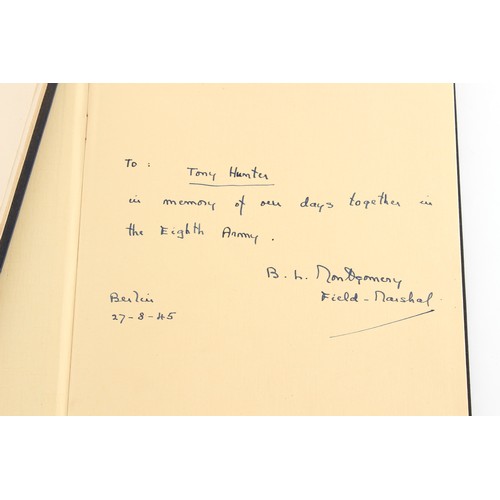 To :
Tony Hunter
in memory of our days together in
the Eighth Army .
B. L. Montgomery
Field - Marshal.
Berlin
27-8-45